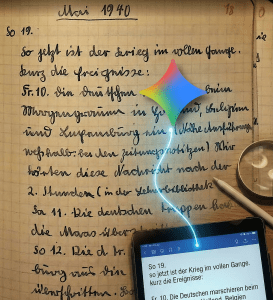 Mai 1940
So 19.
so jetzt ist der Krieg im vollen Gange.
kurz die Ereignisse:
Fr. 10. Die Deutschen beim
Morgengrauen in Belgien
und Luxemburg ein (Nähe Ausführung
weshalb bei den Zeitungsnotizen) Wir
hörten diese Nachricht nach der
2. Stunde (in der Lehrerbibliothek
Sa 11. Die deutschen Truppen
die Maas
So 12. Die d. Tr.
burg nun den
überschritten.
So 19.
so jetzt ist der Krieg im vollen Gange,
kurz die Ereignisse:
Fr. 10. Die Deutschen marschieren beim